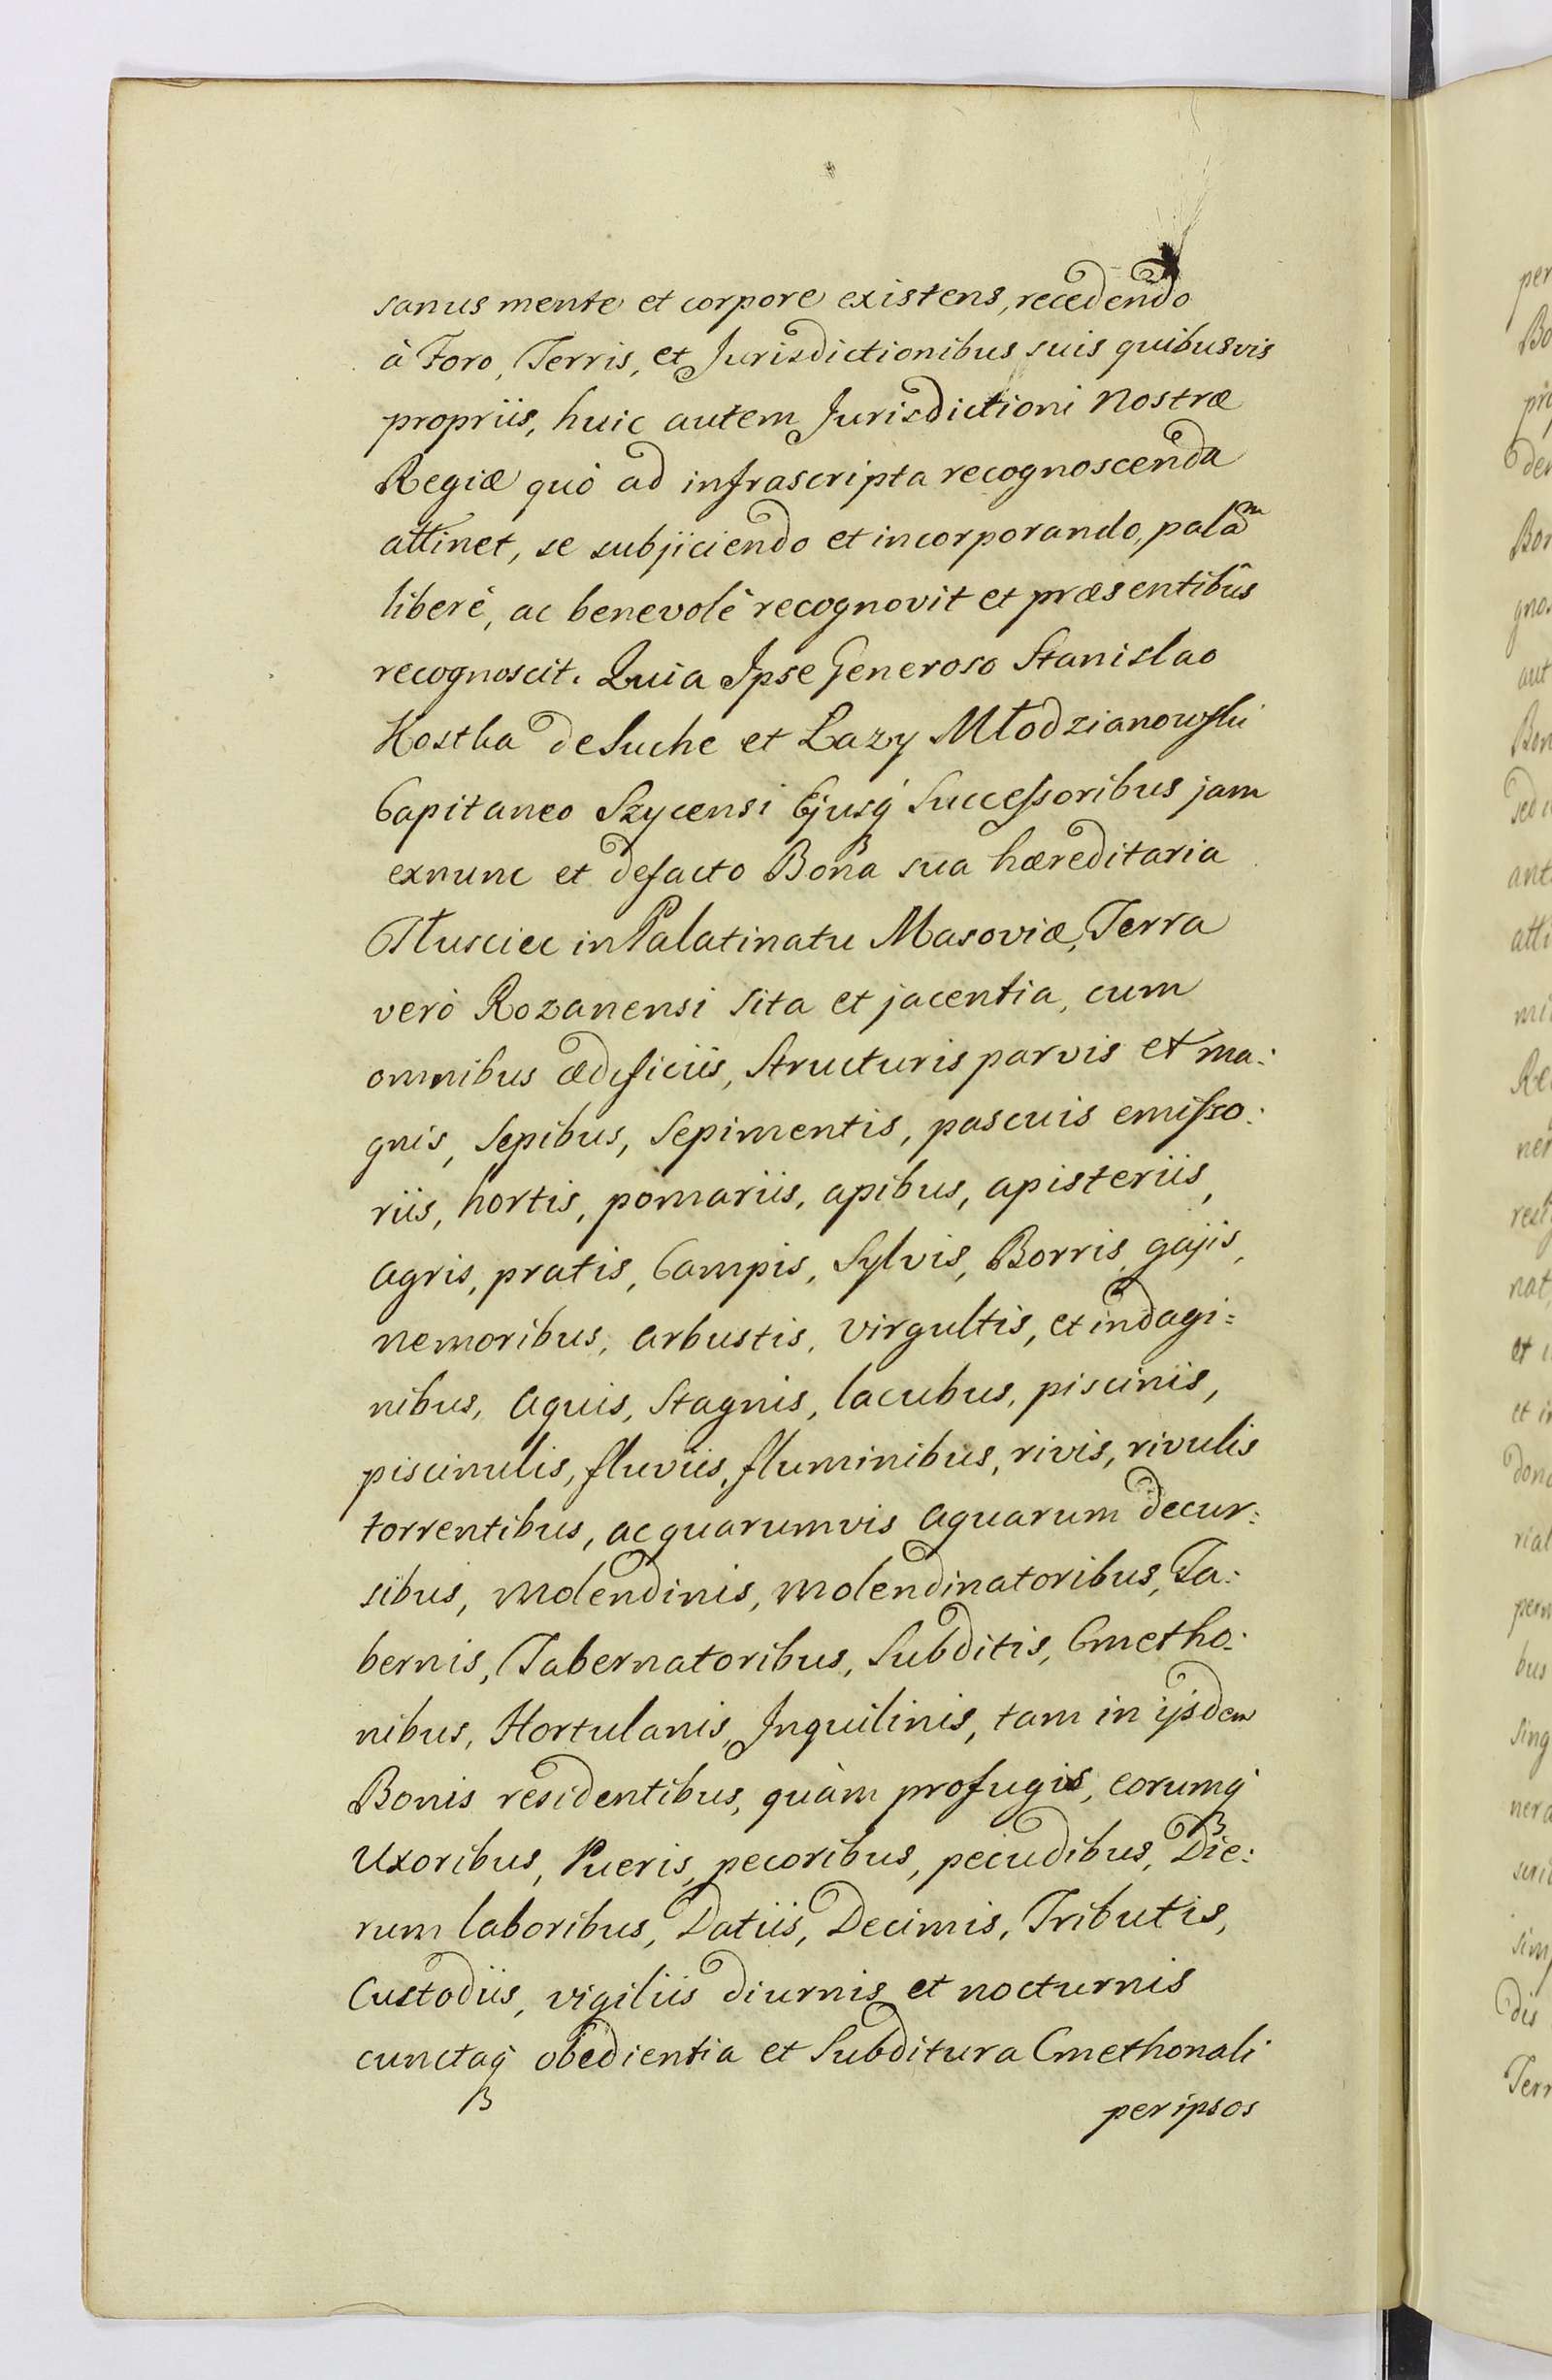 sanus mente et corpore existens, recedendo
à Foro, Terris, et Jurisdictionibus suis quibusvis
propriis, huic autem Jurisdictioni Nostræ
Regiæ quò ad infrascripta recognoscenda
attinet, se subjiciendo et incorporando, palam
liberè, ac benevolè recognovit et præsentibûs
recognoscit. Quia Ipse Generoso Stanislao
Kostka de Suche et Lazy Młodzianowski
Capitaneo Szycensi Ejusq́ Successoribus jam
exnunc et defacto Bona sua hæreditaria
Tłusciec in Palatinatu Masoviæ, Terra
verò Rozanensi sita et jacentia, cum
omnibus ædificiis, Structuris parvis et ma:
gnis, Sepibus, Sepimentis, pascuis emisso:
riis, hortis, pomariis, apibus, apisteriis,
agris, pratis, Campis, Sylvis, Borris, gajis,
nemoribus, arbustis, virgultis, et indagi:
nibus, aquis, Stagnis, lacubus, piscinis,
piscinulis, fluviis, fluminibus, rivis, rivulis
torrentibus, acquarumvis aquarum decur:
sibus, molendinis, molendinatoribus, Ta:
bernis, Tabernatoribus, Subditis, Cmetho:
nibus, Hortulanis, Inquilinis, tam in ijsdem
Bonis residentibus, quàm profugis, eorumq́
Uxoribus, Pueris, pecoribus, pecudibus, Die:
rum laboribus, Datiis, Decimis, Tributis,
Custodiis, vigiliis diurnis et nocturnis
cunctaq́ obedientia et Subditura Cmethonali
per ipsos